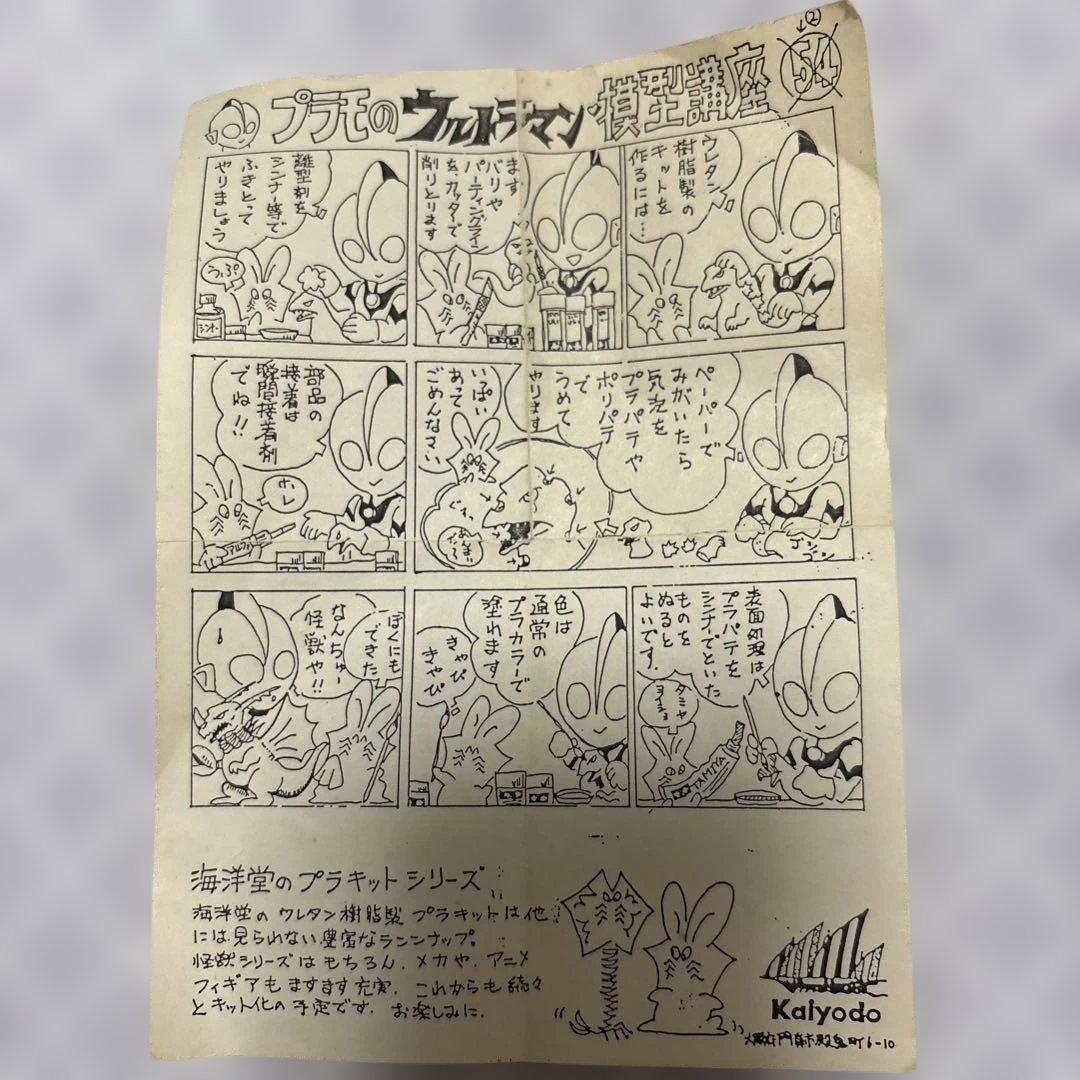 プラモのウルトラマン・模型講座
↓②
54
ウレタン
樹脂製の
キットを
作るには…
まず
バリや
パーティングライン
を、カッターで
削りとります
離型剤を
シンナー等で
ふきとって
やりましょう
うっぷ
シンナー
ペーパーで
みがいたら
気泡を
プラパテや
ポリパテ
で
うめて
やります
いっぱい
あって
ごめんなさい
ゴシ
ゴシ
部品の
接着は
瞬間接着剤
でね!!
ホレ
表面処理は
プラパテを
シンナーでといた
ものを
ぬると
よいです。
タミヤ
TAMIYA
色は
通常の
プラカラーで
塗れます
きゃぴ
きゃぴ
ぼくにも
できた
なんちゅー
怪獣や!!
海洋堂のプラキットシリーズ
海洋堂の ウレタン樹脂製 プラキットは他
には見られない豊富なランンナップ。
怪獣シリーズは もちろん、メカや、アニメ
フィギアも ますます 充実、これからも 続々
とキット化の 予定です、お楽しみに、
Kaiyodo